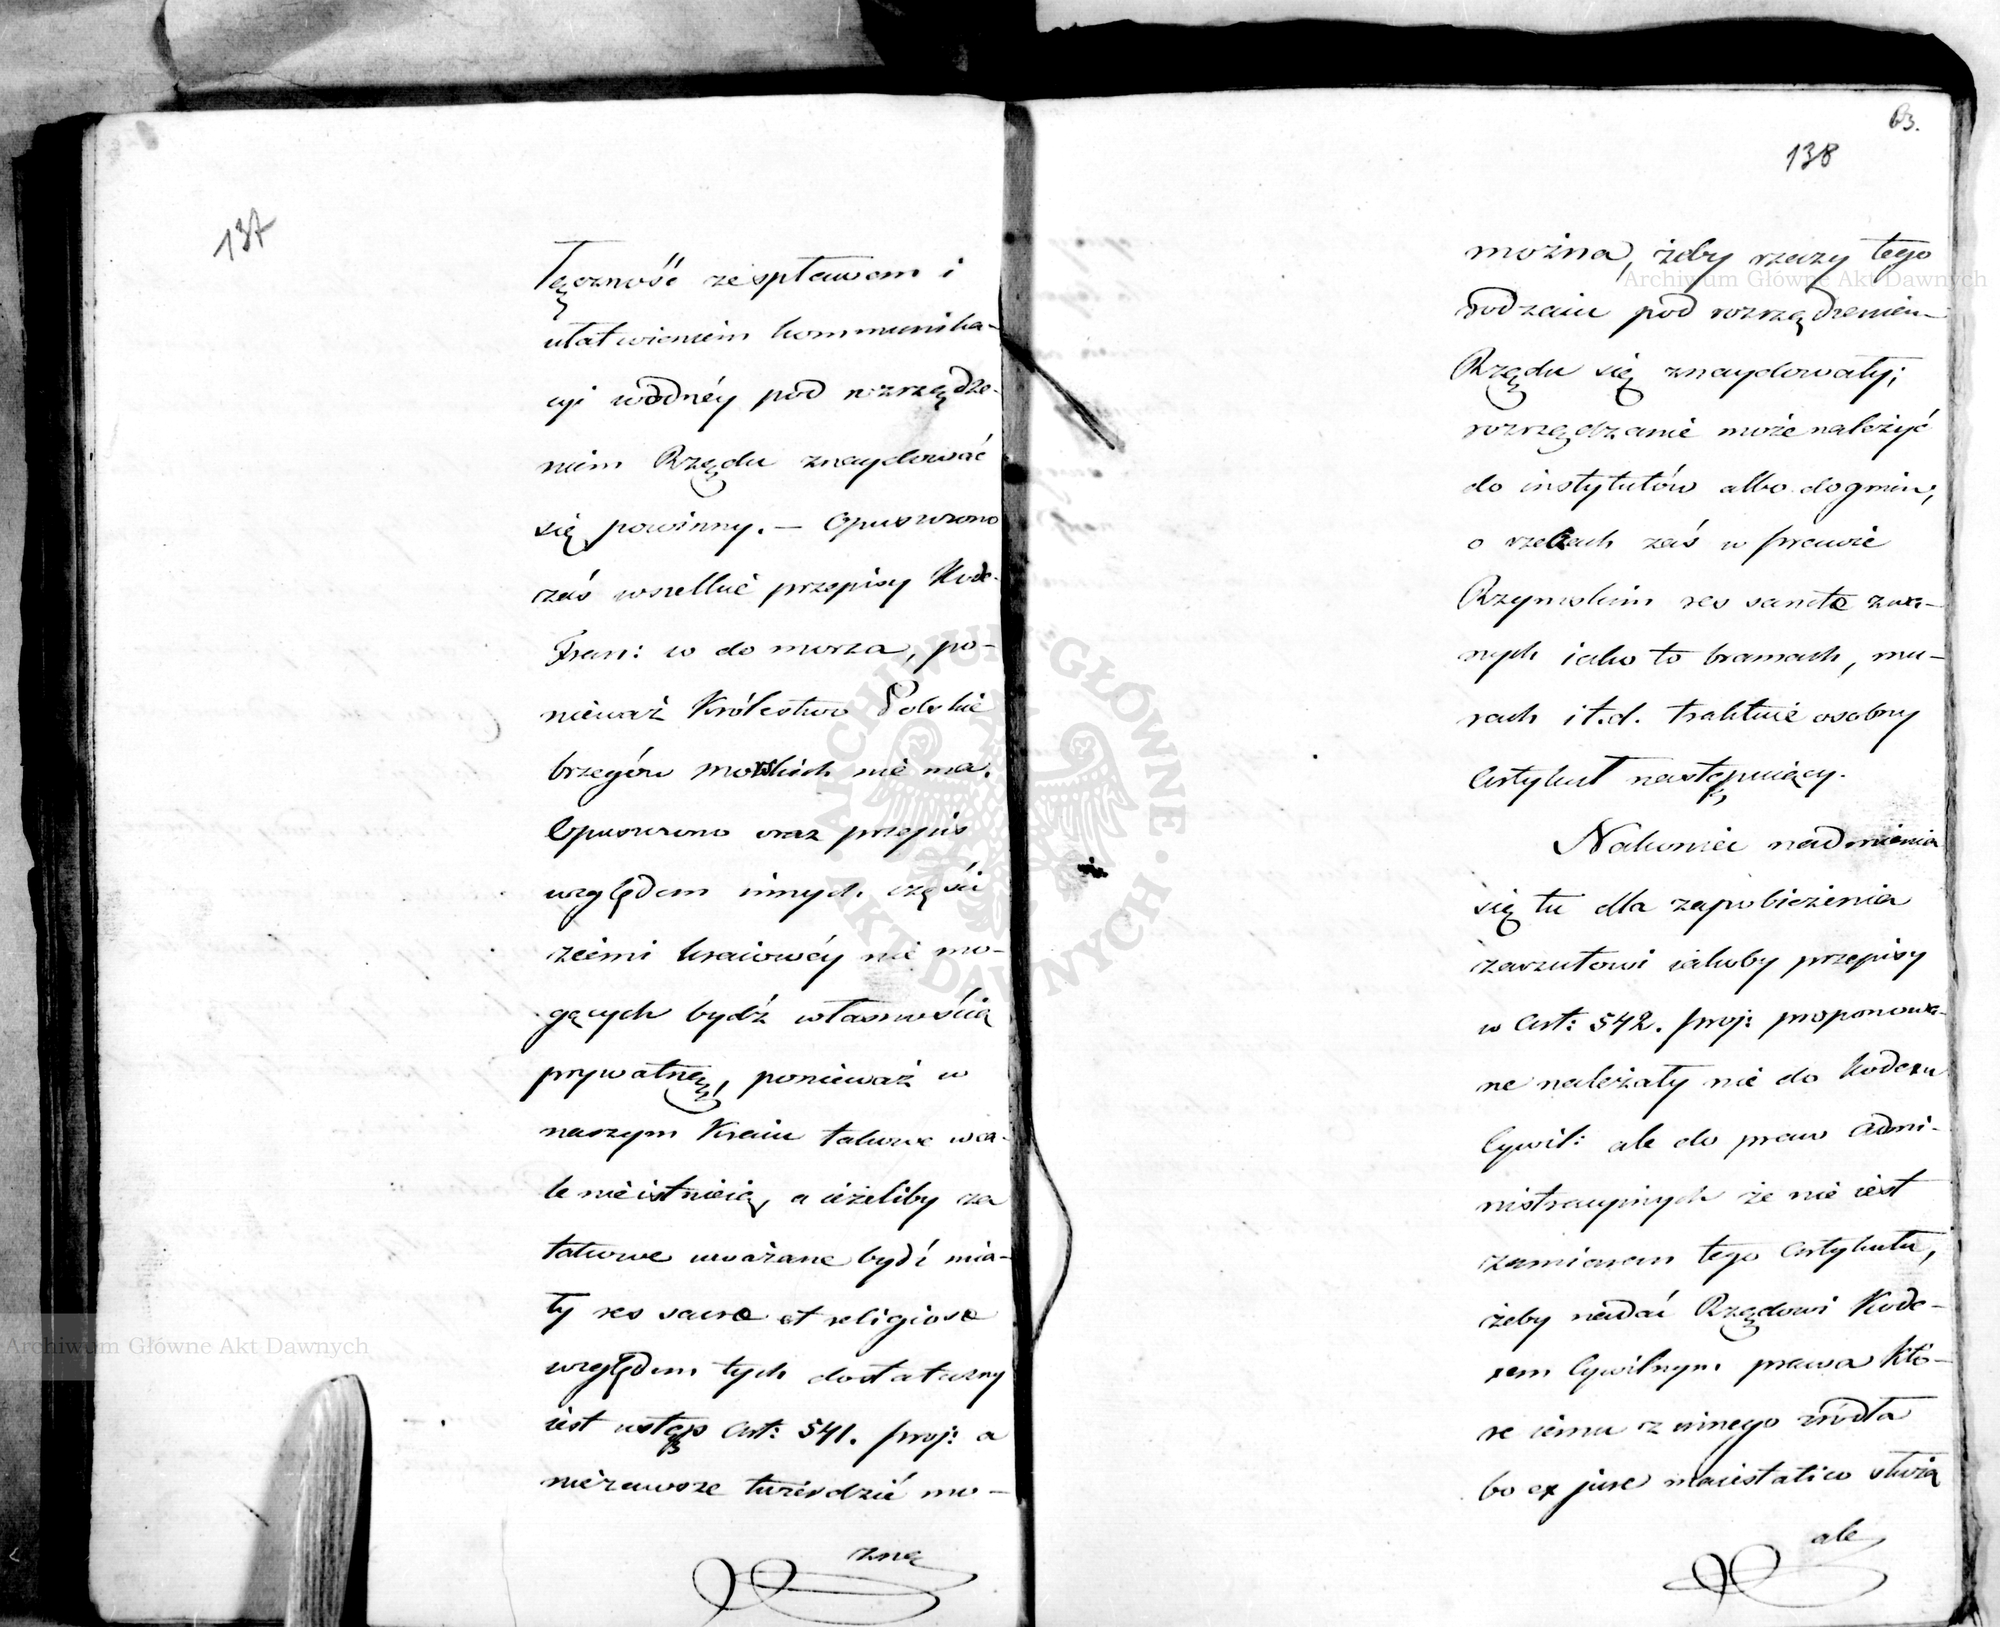 137
Łączność ze spławem i
ułatwieniem kommunika-
cyi wodnéy pod rozrządze-
niem Rządu znaydować
się powinny. — Opuszczono
zaś wszelkie przepisy Kode:
Fran: w do morza, po-
nieważ Królestwo Polskie
brzegów morskich nie ma.
Opuszczono oraz przepis
względem innych części
ziemi kraiowéy nie mo-
gących bydź własnością
prywatną, ponieważ w
naszym Kraiu takowe wca-
le nieistnieią, a ieżeliby za
takowe uważane bydź mia-
ły res sacræ et religiosæ
względem tych dostateczny
iest ustęp Art: 541. proj: a
niezawsze twierdzić mo-
żna
63.
138
można, żeby rzeczy tego
rodzaiu pod rozrządzeniem
Rządu się znaydowały;
rozrządzanie może należyć
do instytutów albo do gmin,
o rzeczach zaś w prawie
Rzymskim res sanctæ zwa-
nych iako to bramach, mu-
rach i t.d. traktuie osobny
Artykuł następuiący.
Nakoniec nadmienia
się tu dla zapobieżenia
zarzutowi iakoby przepisy
w Art: 542. proj: proponowa-
ne należały nie do Kodexu
Cywil: ale do praw Admi-
nistracyinych że nie iest
zamiarem tego Artykułu,
żeby nadać Rządowi Kode-
xem Cywilnym prawa któ-
re iemu z innego źródła
bo ex jure maiestatico służą
ale
Archiwum Główne Akt Dawnych
Archiwum Główne Akt Dawnych
ARCHIWUM GŁÓWNE AKT DAWNYCH